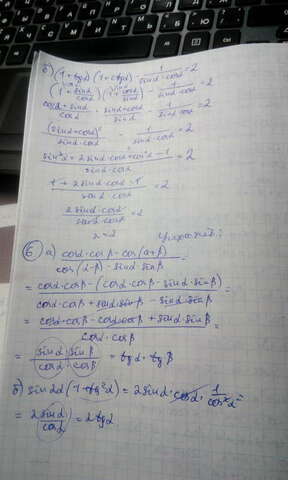 б) (1+tgα)(1+ctgα) - 1/(sinα·cosα) = 2
(1+ sinα/cosα)(1+ cosα/sinα) - 1/(sinα·cosα) = 2
(cosα+sinα)/cosα · (sinα+cosα)/sinα - 1/(sinα·cosα) = 2
(sinα+cosα)²/(sinα·cosα) - 1/(sinα·cosα) = 2
(sin²α+2sinα·cosα+cos²α-1)/(sinα·cosα) = 2
(1+2sinα·cosα-1)/(sinα·cosα) = 2
2sinα·cosα/(sinα·cosα) = 2
2=2
Упростить:
6) a) (cosα·cosβ-cos(α+β))/(cos(α-β)-sinα·sinβ) =
= (cosα·cosβ-(cosα·cosβ-sinα·sinβ))/(cosα·cosβ+sinα·sinβ-sinα·sinβ) =
= (cosα·cosβ-cosα·cosβ+sinα·sinβ)/(cosα·cosβ) =
= (sinα·sinβ)/(cosα·cosβ) = tgα·tgβ
б) sin2α(1+tg²α) = 2sinα·cosα·1/cos²α =
= 2sinα/cosα = 2tgα